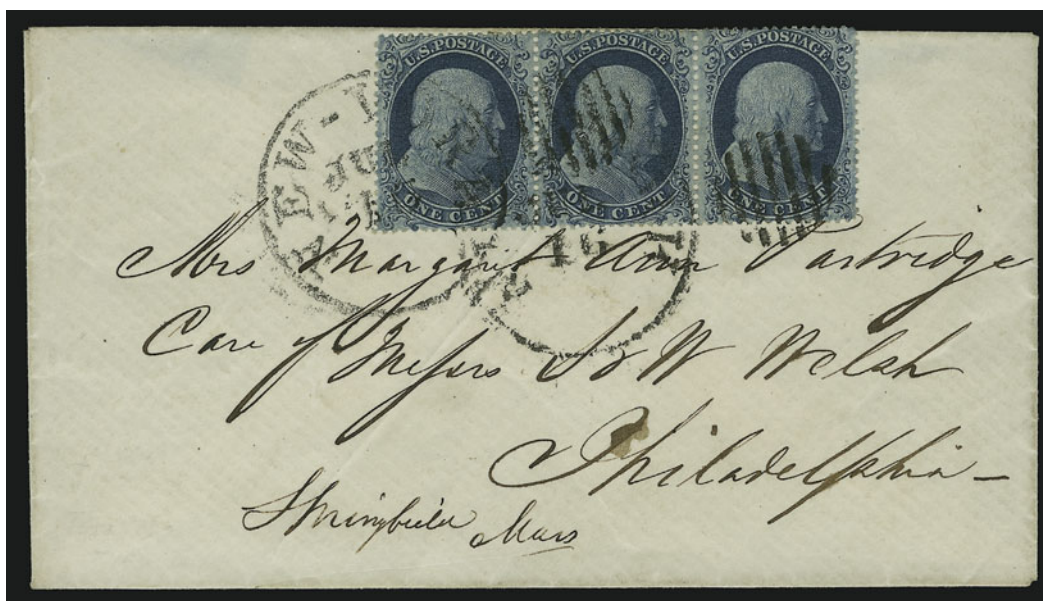 U.S. POSTAGE U.S. POSTAGE U.S. POSTAGE
ONE CENT ONE CENT ONE CENT
NEW-
16
Mrs Margaret Ann Partridge
Care of Messrs S & W Welsh
Philadelphia -
Springfield Mass